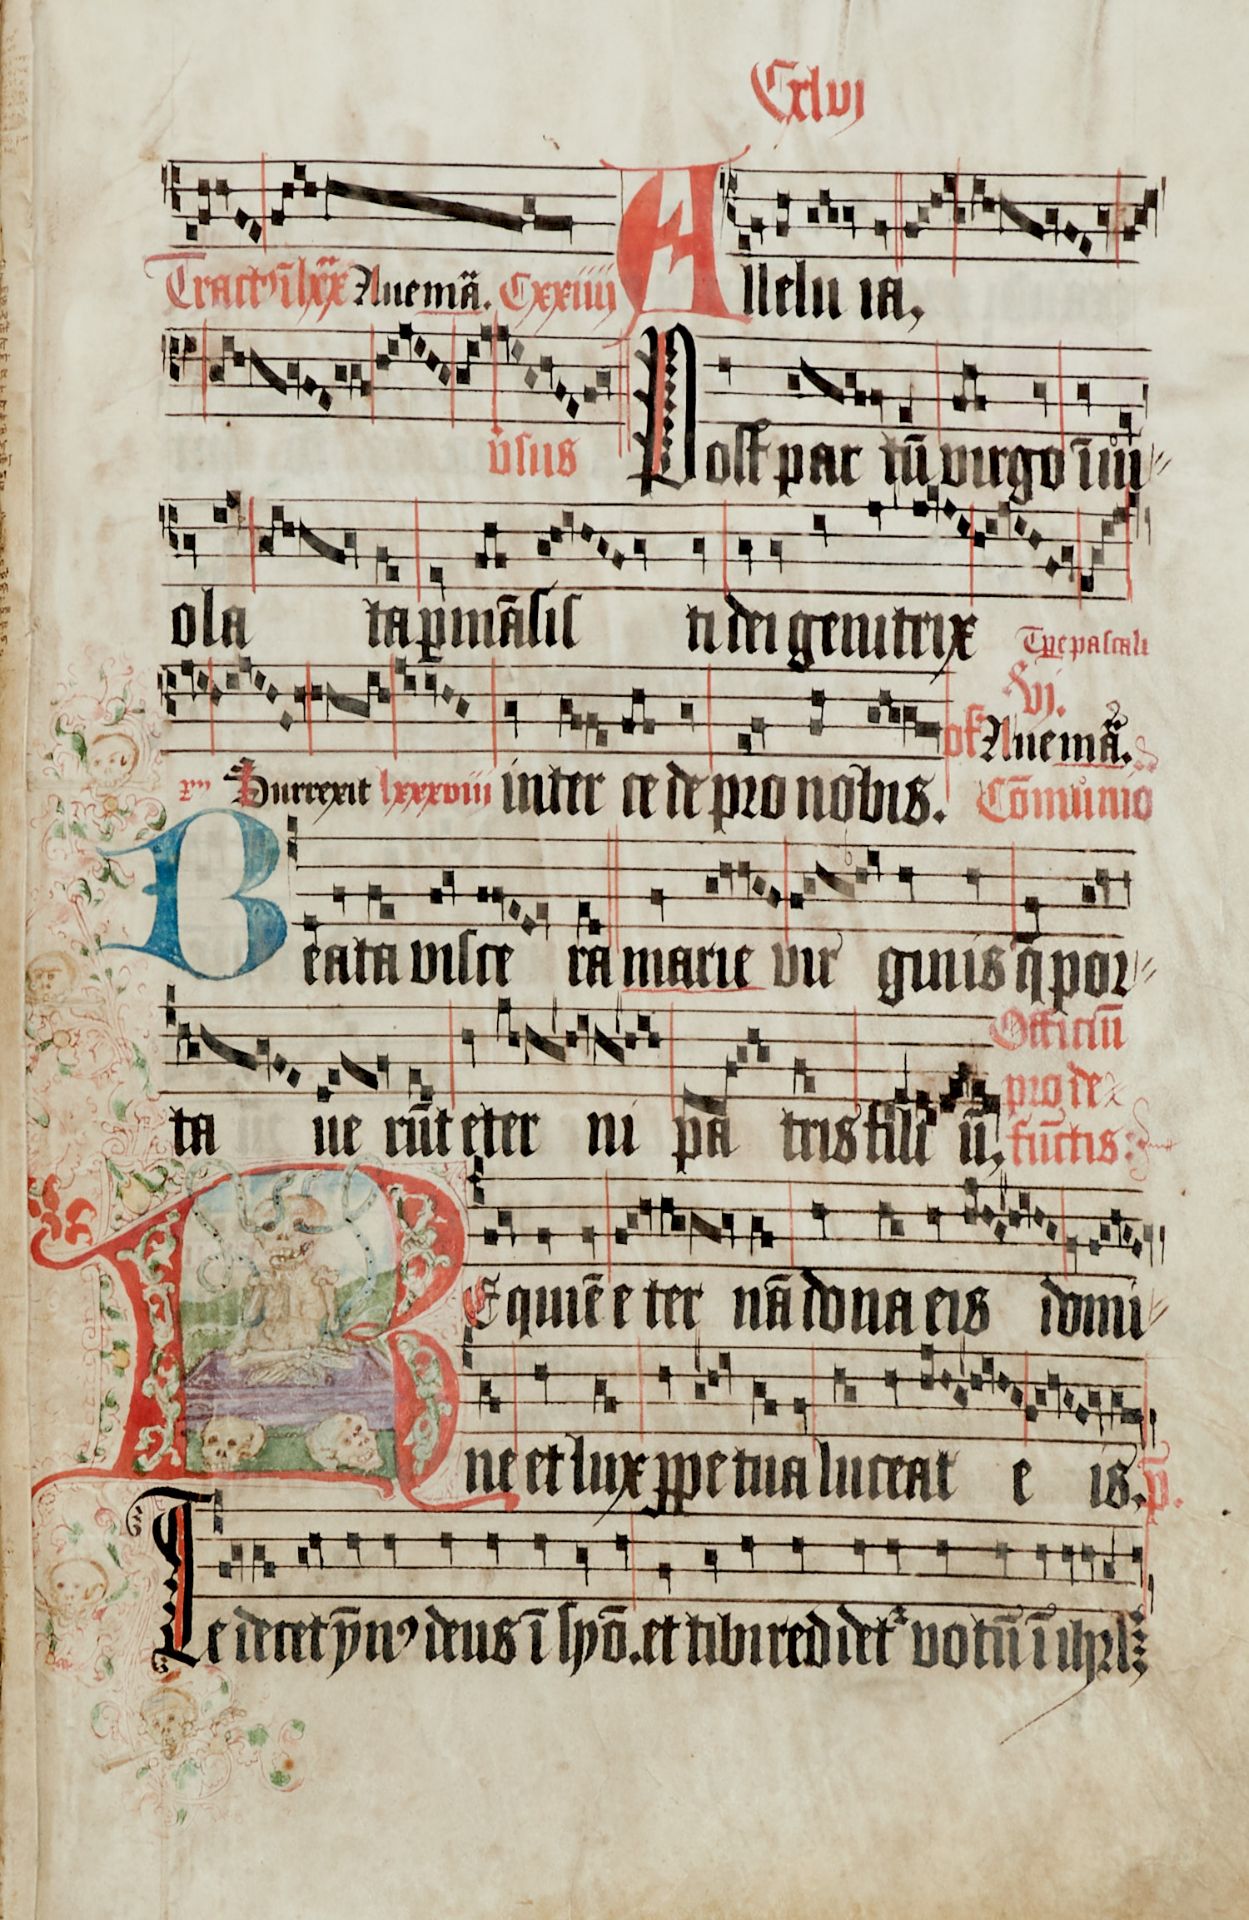 Cxlvj
Tract9 ī lxx Aue mā. Cxxiiii Allelu ia,
v̄sus Post par tū virgo īui
ola ta p̱māsis ti dei genitrix
Tp̱e pascali
vj.
off Aue mā.
Surrexit lxxxviii inter ce de pro nobis. Cōmunio
Beata visce ra marie vir ginis q̄ por
ta ue rūt eter ni pa tris fili ū,
Officiū
pro de
fūctis:
Requiē e ter nā dona eis domi
ne et lux p̱pe tua luceat e is. p̄.
Te decet ȳn9 deus ī syō. et tibi reddet᷑ votū ī ihrlꝫ